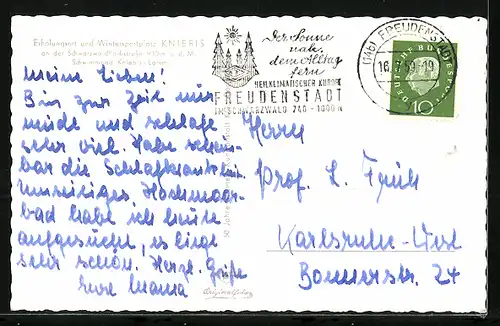 Erholungsort und Wintersportplatz KNIEBIS
an der Schwarzwaldhochstraße
Meine Lieben!
Bin zur Zeit nur
müde und schlafe
sehr viel. Habe schein-
bar die Schlafkrankheit.
Hochmoor-
bad habe ich heute
aufgesucht, es liegt
sehr schön. Herzl. Grüße
Eure Mama
Der Sonne
nah,
dem Alltag
fern
HEILKLIMATISCHER KURORT
FREUDENSTADT
IM SCHWARZWALD 740 - 1000 M
(14b) FREUDENSTADT
16. 59.-19
DEUTSCHE BUNDESPOST
10
Herrn
Prof. L.
Karlsruhe-West
24